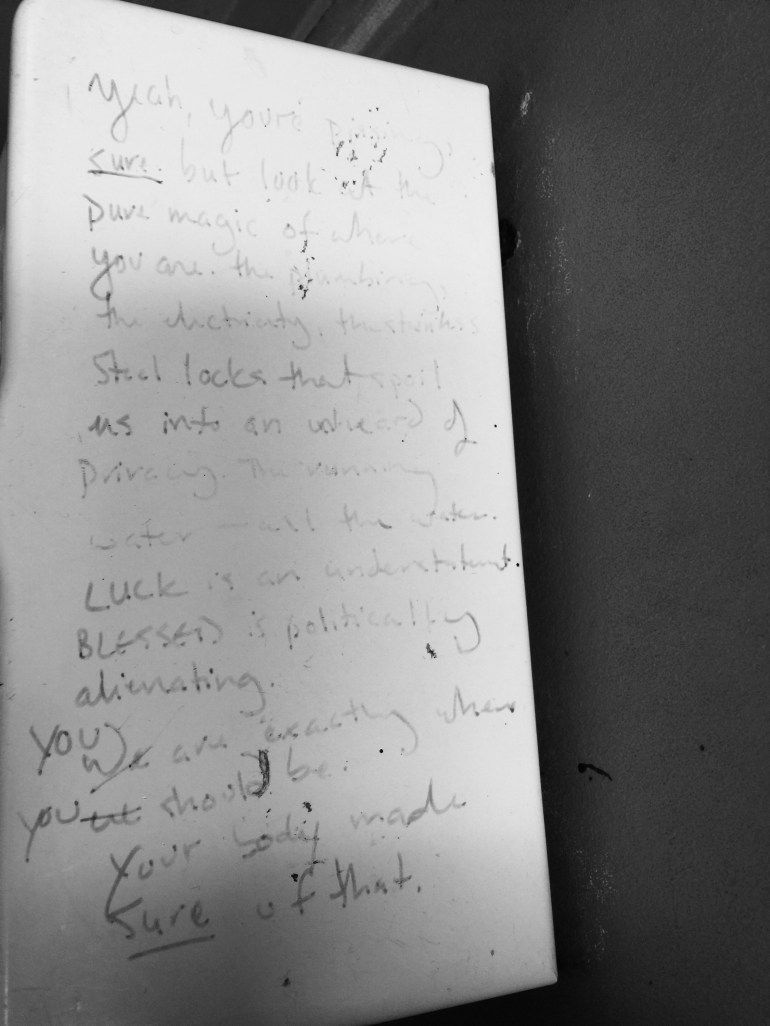 Yeah, you're pissing,
sure. but look at the
pure magic of where
you are. the plumbing,
the electricity, the stainless
Steel locks that spoil
us into an unheard of
privacy. The running
water — all the water.
LUCK is an understatement.
BLESSED is politically
alienating.
YOU We are exactly where
you we should be.
Your body made
Sure of that.